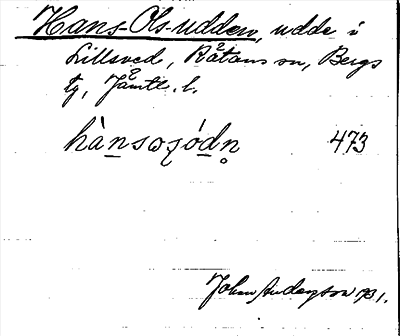 Hans-Ols-udden, udde i
Lillsved, Råtans sn, Bergs
tg, Jämtl. l.
hànsoʂódn̥ 473
Johan Anderzson 1931.